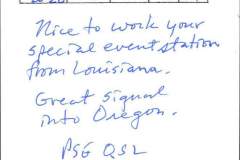 Nice to work your
special event station
from Louisiana.
Great signal
into Oregon.
PSE QSL